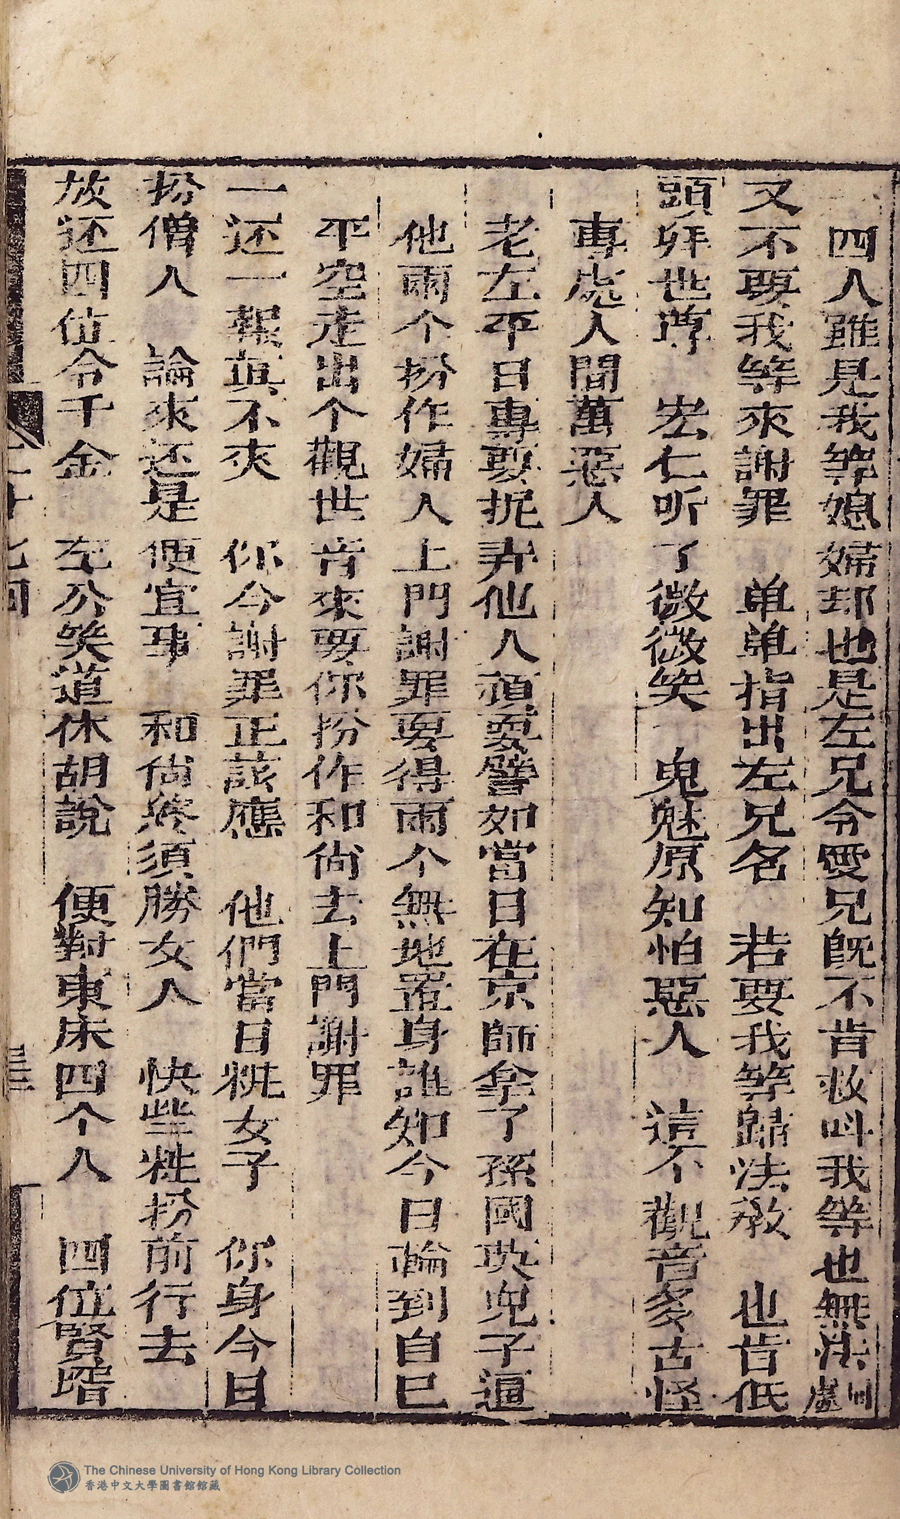 四人雖是我等媳婦却也是左兄令愛兄既不肯救呌我等也無法可處
又不要我等來謝罪　单单指出左兄名　若要我等歸法教　也肯低
頭拜世尊　宏仁听了微微笑　鬼魅原知怕惡人　這个觀音多古怪
專處人間萬惡人
老左平日專要捉弄他人頑耍譬如當日在京師拿了孫國英兒子逼
他兩个扮作婦人上門謝罪耍得兩个無地置身誰知今日輪到自己
平空走出个觀世音來要你扮作和尙去上門謝罪
一还一報真不爽　你今謝罪正該應　他們當日粧女子　你身今日
扮僧人　論來还是便宜事　和尙終須勝女人　快些粧扮前行去
放还四位令千金　左公笑道休胡說　便對東床四个人　四位賢階
The Chinese University of Hong Kong Library Collection
香港中文大學圖書館館藏